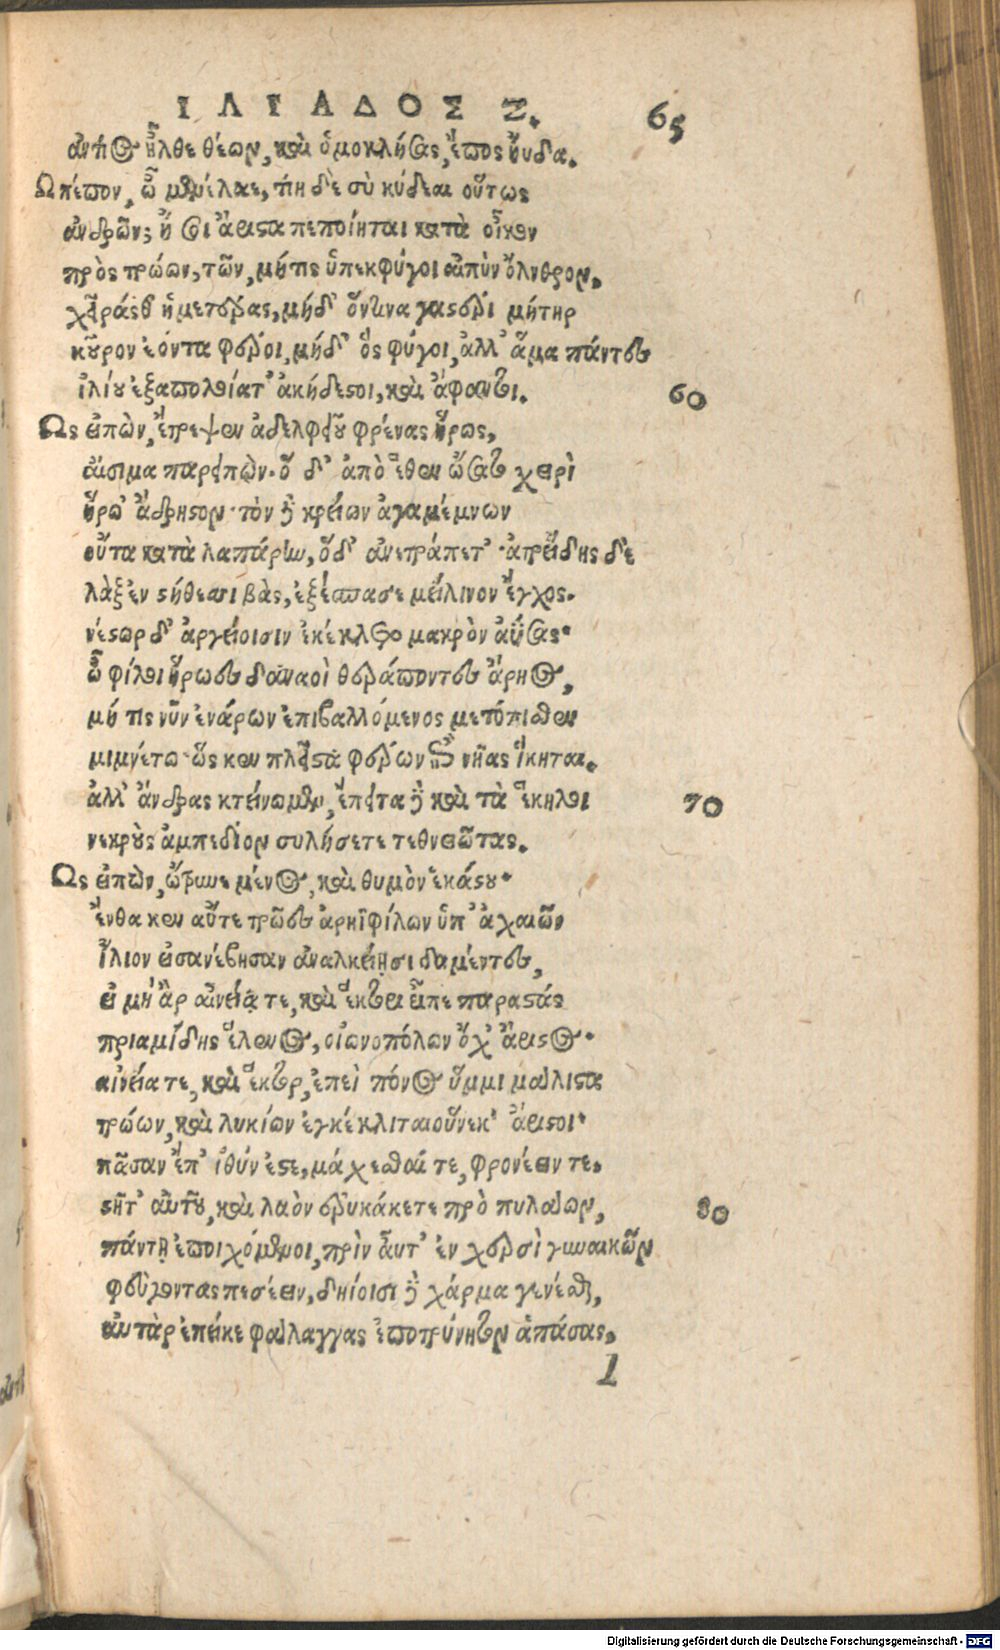 ΙΛΙΑΔΟΣ Ζ. 65
ἀντίος ἦλθε θέων, καὶ ὁμοκλήσας, ἔπος ηὔδα.
Ὦ πέπον, ὦ μενέλαε, τίη δὲ σὺ κήδεαι οὕτως
ἀνδρῶν; ἦ σοὶ ἄριστα πεποίηται κατὰ οἶκον
πρὸς τρώων, τῶν, μήτις ὑπεκφύγοι αἰπὺν ὄλεθρον.
χεῖράς θ' ἡμετέρας, μήδ' ὅντινα γαστέρι μήτηρ
κοῦρον ἐόντα φέροι, μήδ' ὃς φύγοι, ἀλλ' ἅμα πάντες
ἰλίου ἐξαπολοίατ' ἀκήδεστοι, καὶ ἄφαντοι. 60
Ὣς εἰπὼν, ἔτρεψεν ἀδελφείου φρένας ἥρως,
αἴσιμα παρειπών. ὃ δ' ἀπὸ ἕθεν ὤσατο χειρὶ
ἥρω' ἄδρηστον. τὸν δὲ κρείων ἀγαμέμνων
οὖτα κατὰ λαπάρην, ὅδ' ἀνετράπετ'. ἀτρείδης δὲ
λὰξ ἐν στήθεσι βὰς, ἐξέσπασε μείλινον ἔγχος.
νέστωρ δ' ἀργείοισιν ἐκέκλετο μακρὸν ἀΰσας.
ὦ φίλοι ἥρωες δαναοὶ θεράποντες ἄρηος,
μή τις νῦν ἐνάρων ἐπιβαλλόμενος μετόπισθεν
μιμνέτω. ὥς κεν πλεῖστα φέρων ἐπὶ νῆας ἵκηται.
ἀλλ' ἄνδρας κτείνωμεν, ἔπειτα δὲ καὶ τὰ ἕκηλοι 70
νεκροὺς ἀμπεδίον συλήσετε τεθνεῶτας.
Ὣς εἰπὼν, ὤτρυνε μένος, καὶ θυμὸν ἑκάστου.
ἔνθα κεν αὖτε τρῶες ἀρηϊφίλων ὑπ' ἀχαιῶν
ἴλιον εἰσανέβησαν ἀναλκείῃσι δαμέντες,
εἰ μὴ ἂρ αἰνείᾳ τε, καὶ ἕκτορι εἶπε παραστάς
πριαμίδης ἕλενος, οἰωνοπόλων ὄχ' ἄριστος.
αἰνεία τε, καὶ ἕκτορ, ἐπεὶ πόνος ὔμμι μάλιστα
τρώων, καὶ λυκίων ἐγκέκλιται οὕνεκ' ἄριστοι.
πᾶσαν ἔπ' ἰθύν ἐστε, μάχεσθαί τε, φρονέειν τε.
στῆτ' αὐτοῦ, καὶ λαὸν ἐρυκάκετε πρὸ πυλάων, 80
πάντῃ ἐποιχόμενοι, πρὶν αὖτ' ἐν χερσὶ γυναικῶν
φεύγοντας πεσέειν, δηίοισι δὲ χάρμα γενέσθαι,
αὐτὰρ ἐπείκε φάλαγγας ἐποτρύνητον ἁπάσας.
l
Digitalisierung gefördert durch die Deutsche Forschungsgemeinschaft - DFG